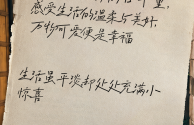 里，
感受生活的温柔与美好，
万物可爱便是幸福
生活虽平淡却处处充满小
惊喜